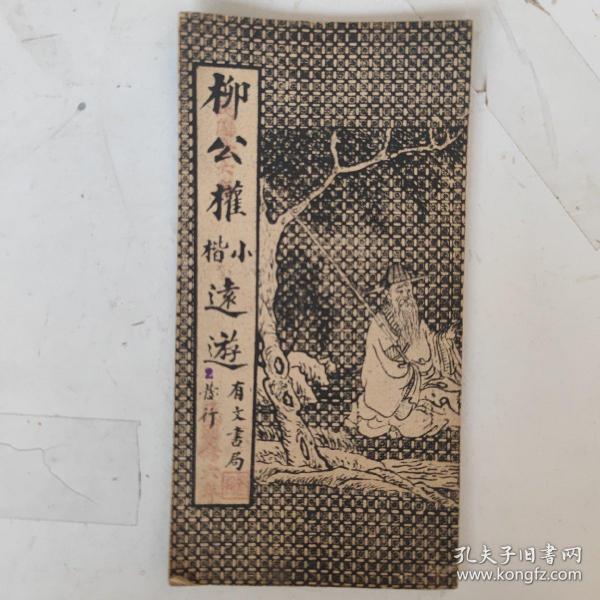 柳公權
小楷
遠遊
有文書局
發行
2
孔夫子旧書网
www.kongfz.com